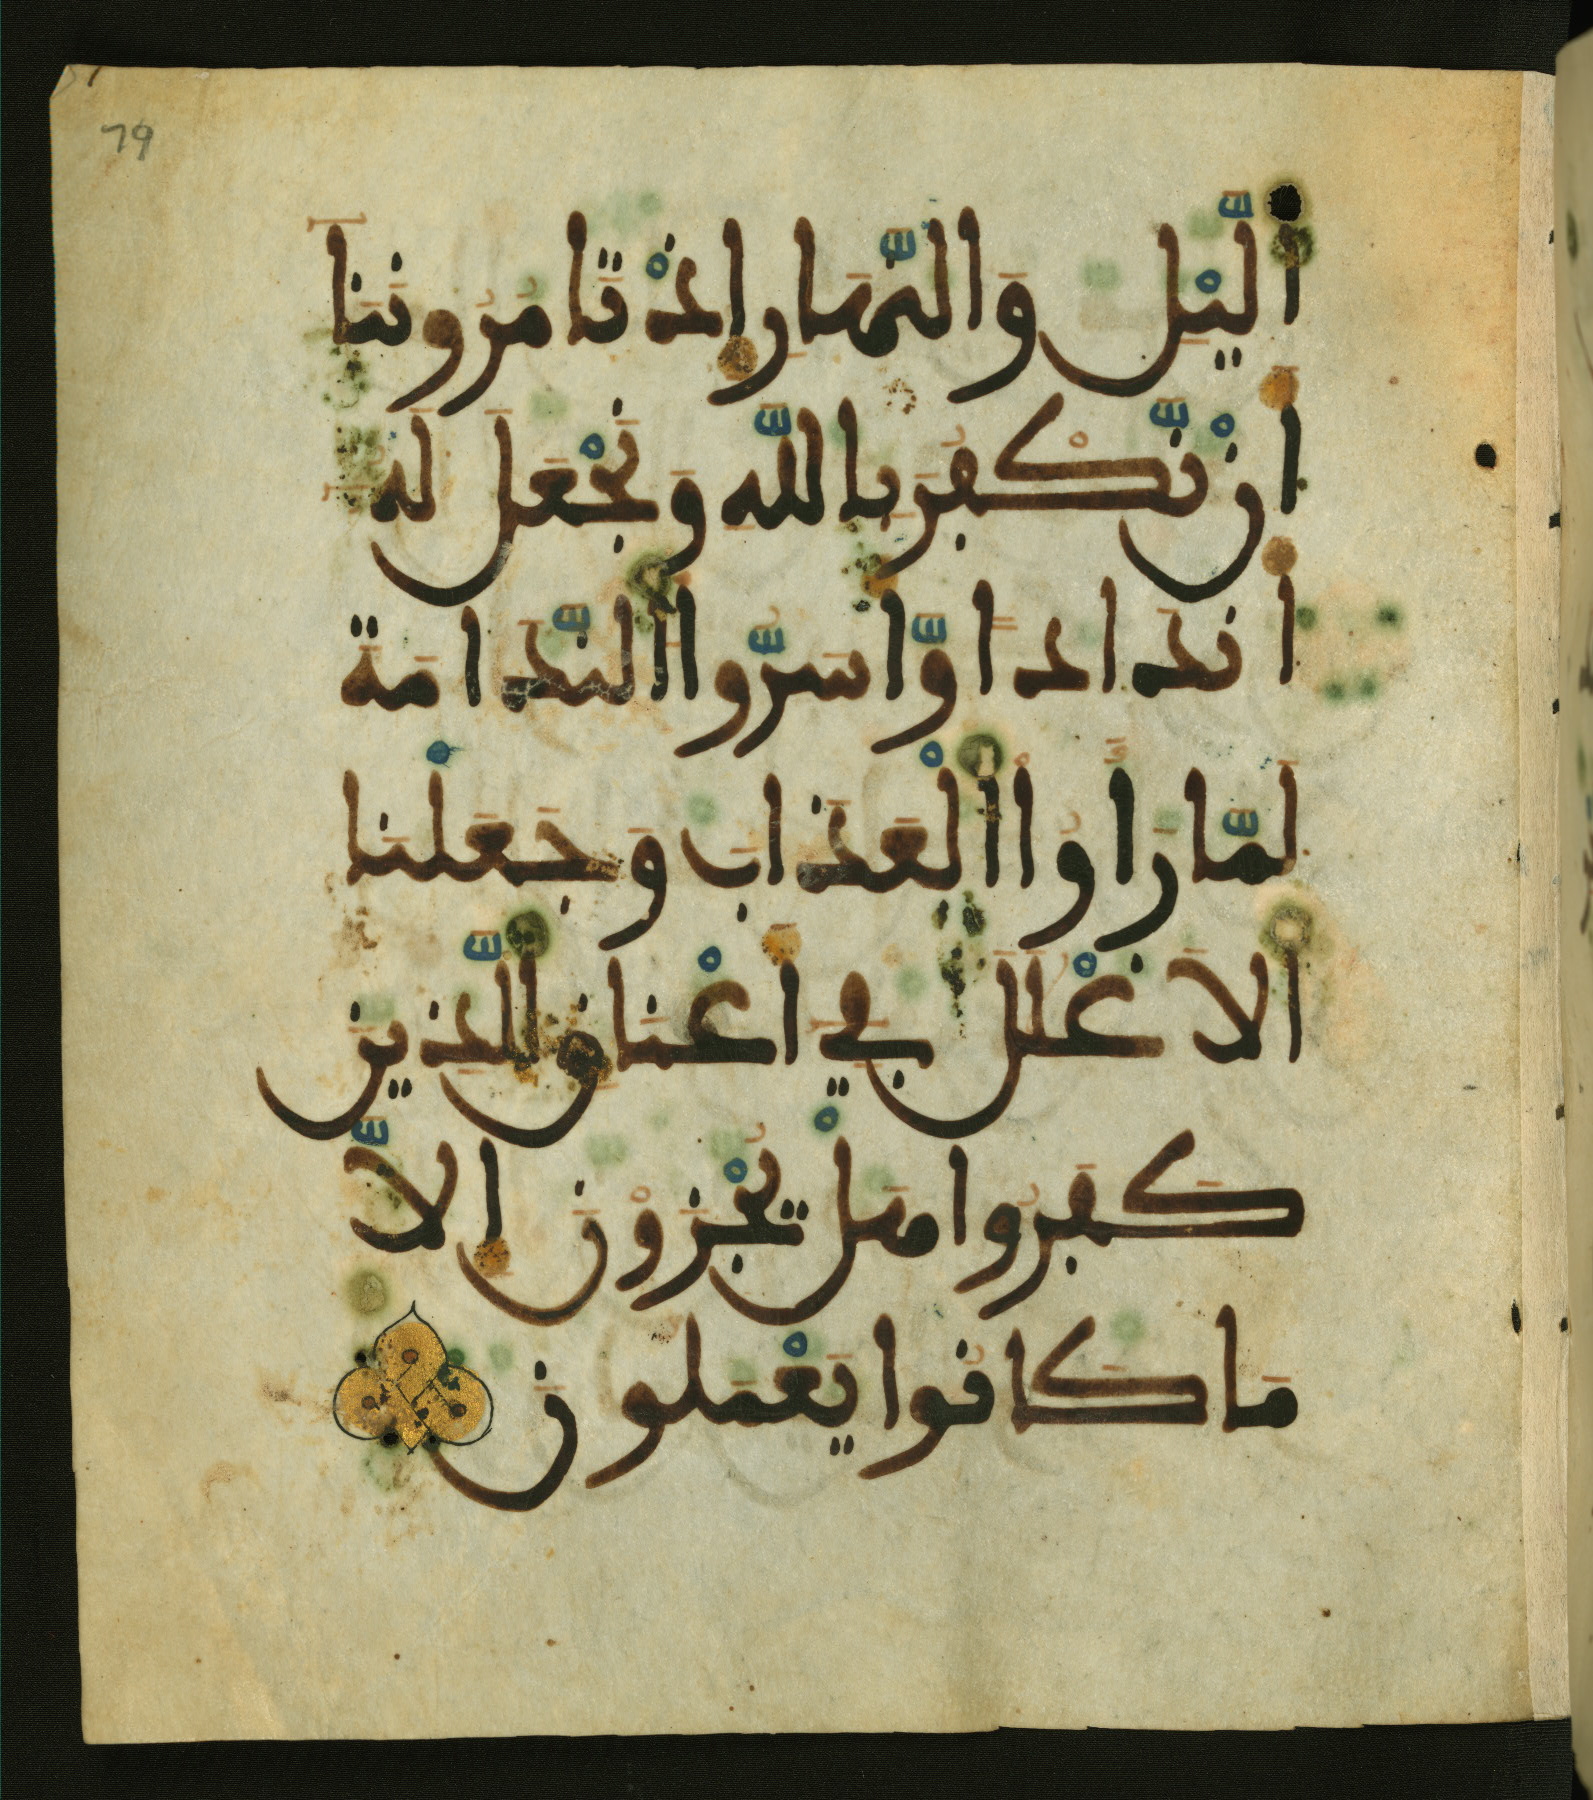 79
اَ۬ليْلِ وَالنَّهَارِ إِذْ تَامُرُونَنَا
أَن نَّكْفُرَ بِاللَّهِ وَنَجْعَلَ لَهُ
أَندَاداً وَّأَسَرُّوا اُ۬لنَّدَامَةَ
لَمَّا رَأَوُا اُ۬لْعَذَابَ وَجَعَلْنَا
اَ۬لَاغْلَلَ فِي أَعْنَاقِ اِ۬لَّذِينَ
كَفَرُوا هَلْ يُجْزَوْنَ إِلَّا
مَا كَانُوا يَعْمَلُونَ